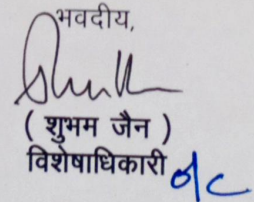 भवदीय,
( शुभम जैन )
विशेषाधिकारी
o/c